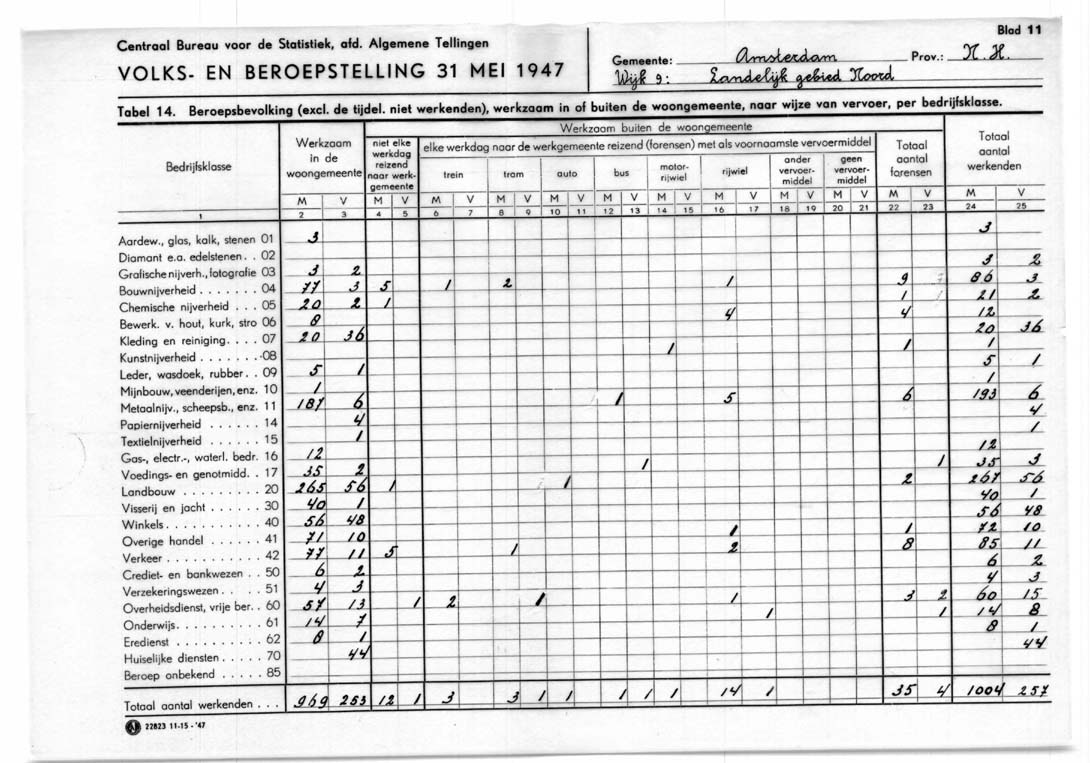 Blad 11
Centraal Bureau voor de Statistiek, afd. Algemene Tellingen
VOLKS- EN BEROEPSTELLING 31 MEI 1947
Gemeente: Amsterdam Prov.: N.H.
Wijk 9: Landelijk gebied Noord
Tabel 14. Beroepsbevolking (excl. de tijdel. niet werkenden), werkzaam in of buiten de woongemeente, naar wijze van vervoer, per bedrijfsklasse.
Bedrijfsklasse
Werkzaam in de woongemeente
Werkzaam buiten de woongemeente
niet elke werkdag reizend naar werkgemeente
elke werkdag naar de werkgemeente reizend (forensen) met als voornaamste vervoermiddel
trein tram auto bus motor-rijwiel rijwiel ander vervoer-middel geen vervoer-middel
Totaal aantal forensen
Totaal aantal werkenden
M V M V M V M V M V M V M V M V M V M V M V M V
1 2 3 4 5 6 7 8 9 10 11 12 13 14 15 16 17 18 19 20 21 22 23 24 25
Aardew., glas, kalk, stenen 01 3 3
Diamant e.a. edelstenen . . 02
Grafische nijverh., fotografie 03 3 2 3 2
Bouwnijverheid . . . . . . . 04 77 3 5 1 2 1 9 86 3
Chemische nijverheid . . . 05 20 2 1 1 21 2
Bewerk. v. hout, kurk, stro 06 8 4 4 12
Kleding en reiniging. . . . 07 20 36 20 36
Kunstnijverheid . . . . . . . 08 1 1 1
Leder, wasdoek, rubber. . 09 5 1 5 1
Mijnbouw, veenderijen, enz. 10 1 1
Metaalnijv., scheepsb., enz. 11 187 6 1 5 6 193 6
Papiernijverheid . . . . . . 14 4 4
Textielnijverheid . . . . . . 15 1 1
Gas-, electr.-, waterl. bedr. 16 12 12
Voedings- en genotmidd. . 17 35 2 1 1 35 3
Landbouw . . . . . . . . . 20 265 56 1 1 2 267 56
Visserij en jacht . . . . . . 30 40 1 40 1
Winkels . . . . . . . . . . . 40 56 48 56 48
Overige handel . . . . . . . 41 71 10 1 1 72 10
Verkeer . . . . . . . . . . . 42 77 11 5 1 2 8 85 11
Crediet- en bankwezen . . 50 6 2 6 2
Verzekeringswezen . . . . 51 4 3 4 3
Overheidsdienst, vrije ber. . 60 57 13 1 2 1 1 3 2 60 15
Onderwijs. . . . . . . . . . 61 14 7 1 1 14 8
Eredienst . . . . . . . . . . 62 8 1 8 1
Huiselijke diensten . . . . . 70 44 44
Beroep onbekend . . . . . 85
Totaal aantal werkenden . . . 969 253 12 1 3 3 1 1 1 1 1 14 1 35 4 1004 257
22823 11-15-'47